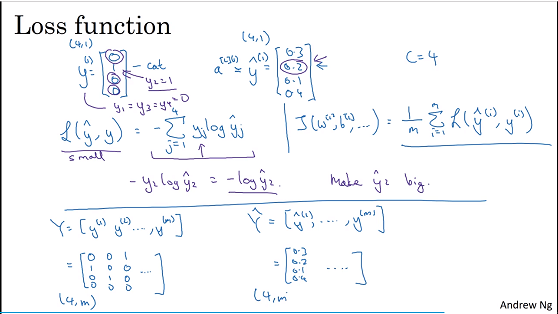 Loss function
(4,1)
y^(i) = [0 1 0 0] - cat
y₂=1
y₁=y₃=y₄=0
(4,1)
a^[L](i) = ŷ^(i) = [0.3 0.2 0.1 0.4]
C=4
L(ŷ,y) = -∑_{j=1}^{4} yⱼ log ŷⱼ
small
J(w^[1], b^[1], ...) = 1/m ∑_{i=1}^{m} L(ŷ^(i), y^(i))
-y₂ log ŷ₂ = -log ŷ₂. Make ŷ₂ big.
Y = [y^(1) y^(2) ..., y^(m)]
= [0 0 1 ....
1 0 0
0 1 0
0 0 0]
(4,m)
Ŷ = [ŷ^(1), ...., y^(m)]
= [0.3 .....
0.2
0.1
0.4]
(4,m
Andrew Ng